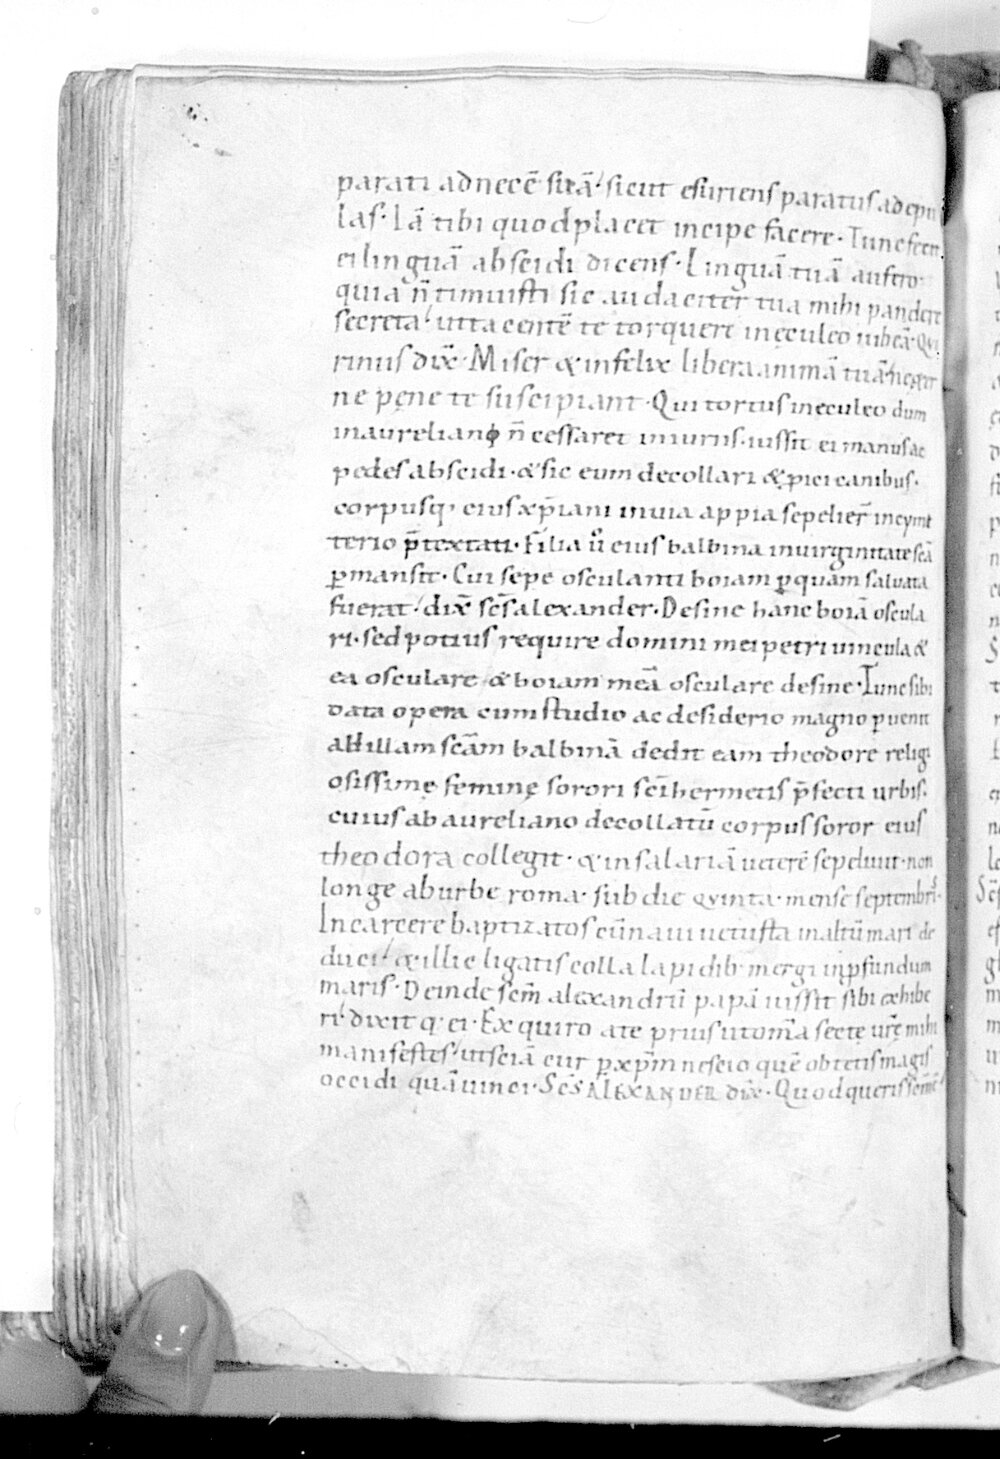 parati ad necē sitā, sicut esuriens paratus ad epu
las. Iā tibi quod placet incipe facere. Tunc fecit
ei linguā abscidi dicens. Linguā tuā aufero.
quia n̄ timuisti sic audaciter tua mihi pandere
secreta, ut tacentē te torquere in eculeo iubeā. Qui
rinus dix̄. Miser & infelix libera animā tuā, ne
ne pęnę te suscipiant. Qui tortus in eculeo dum
in aureliano n̄ cessaret iniuriis. iussit ei manus ac
pedes abscidi. & sic eum decollari & ꝓici canibus.
corpusq; eius xp̄iani in uia appia sepelier̄ in cymit
terio p̄textati. Filia ů eius balbina in uirginitate scā
ꝑmansit. Cui sepe osculanti boiam ꝑ quam saluata
fuerat, dix̄ sc̄s alexander. Desine hanc boiā oscula
ri. sed potius require domini mei petri uincula &
ea osculare & boiam meā osculare desine. Tunc sibi
data opera cum studio ac desiderio magno ꝑuenit
ad illam scām balbinā dedit eam theodore religi
osissimę feminę sorori sc̄i hermetis p̄fecti urbis.
cuius ab aureliano decollatū corpus soror eius
theodora collegit. & in salariā ueterē sepeliuit. non
longe ab urbe roma. sub die quinta. mense septembri.
In carcere baptizatos cū naui uetusta in altū mari de
duci, & illic ligatis colla lapidib; mergi in ꝓfundum
maris. Deinde scm̄ alexandrū papā iussit sibi exhibe
ri, dixit q; ei. Exquiro a te prius ut om̄a sectę ur̄ę mihi
manifestes, ut sciā cur ꝑ xp̄m nescio quē obtetis magis
occidi quā uinci. Sc̄s ALEXANDER dix̄. Quod queris